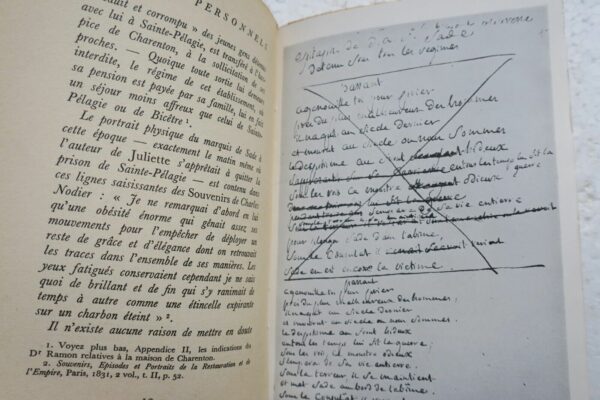 PERSONNELS
duit et corrompu » des jeunes gens détenus
avec lui à Sainte-Pélagie, est transféré à l'hos-
pice de Charenton, à la sollicitation de ses
proches. — Quoique toute sortie lui demeure
interdite, le régime de cet établissement, où
sa pension est payée par sa famille, lui en fait
un séjour moins affreux que celui de Sainte-
Pélagie ou de Bicêtre¹.
Le portrait physique du marquis de Sade à
cette époque — exactement le matin même où
l'auteur de Juliette s'apprêtait à quitter la
prison de Sainte-Pélagie — est contenu dans
ces lignes saisissantes des Souvenirs de Charles
Nodier : « Je ne remarquai d'abord en lui
qu'une obésité énorme qui gênait assez ses
mouvements pour l'empêcher de déployer un
reste de grâce et d'élégance dont on retrouvait
les traces dans l'ensemble de ses manières. Les
yeux fatigués conservaient cependant je ne sais
quoi de brillant et de fin qui s'y ranimait de
temps à autre comme une étincelle expirante
sur un charbon éteint »².
Il n'existe aucune raison de mettre en doute
1. Voyez plus bas, Appendice II, les indications du
Dʳ Ramon relatives à la maison de Charenton.
2. Souvenirs, Episodes et Portraits de la Restauration et
de l'Empire, Paris, 1831, 2 vol., t. II, p. 52.
détenu sous tous les régimes
passant
agenouille toi pour prier
près du plus malheureux des hommes
il naquit au siècle dernier
et mourut au siècle où nous sommes
le despotisme au front hideux
Sade en est encore la victime
passant
agenouille toi pour prier
près du plus malheureux des hommes
il naquit au siècle dernier
et mourut au siècle où nous sommes
le despotisme au front hideux
en tous les temps lui fit la guerre
sous les rois ce monstre odieux
s'empara de sa vie entière
sous la terreur il se maintient
et met Sade au bord de l'abîme
sous le Consulat il